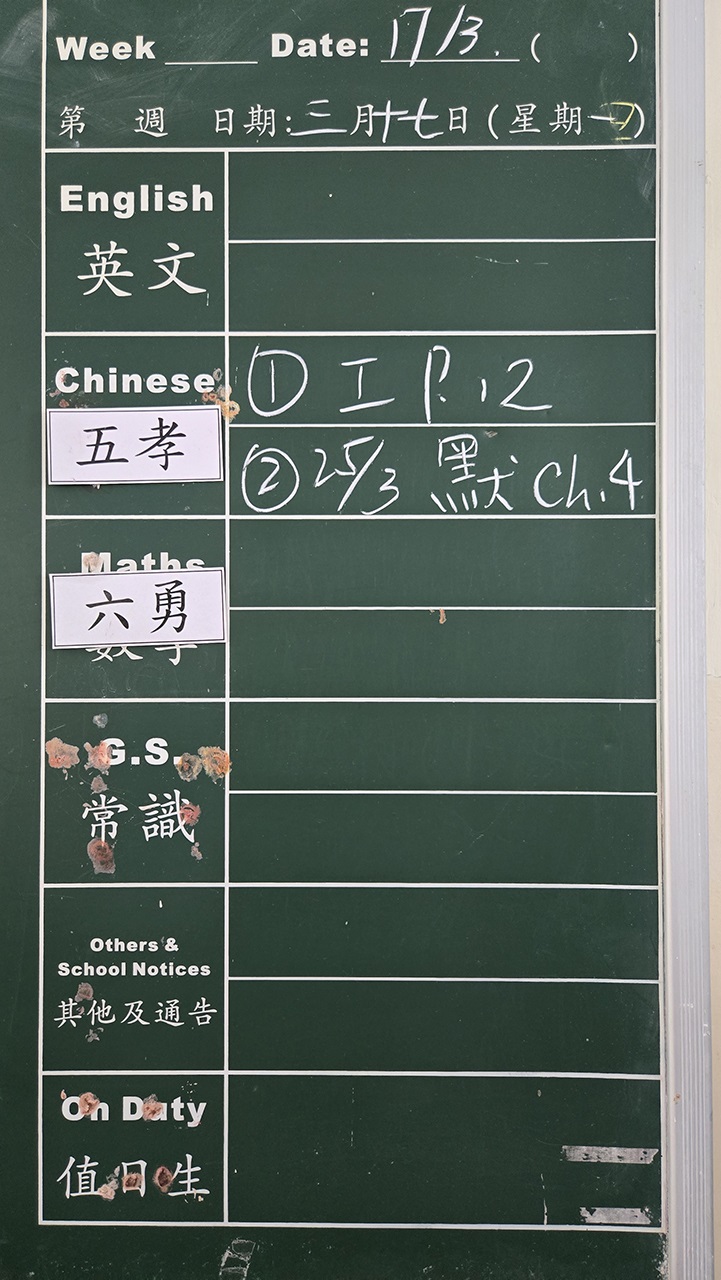 Week Date: 17/3. ( )
第 週 日期:三月十七日(星期一)
English
英文
Chinese ① 工 P.12
五孝 ② 25/3 默 Ch.4
Maths
六勇
數學
G.S.
常識
Others &
School Notices
其他及通告
On Duty
值日生